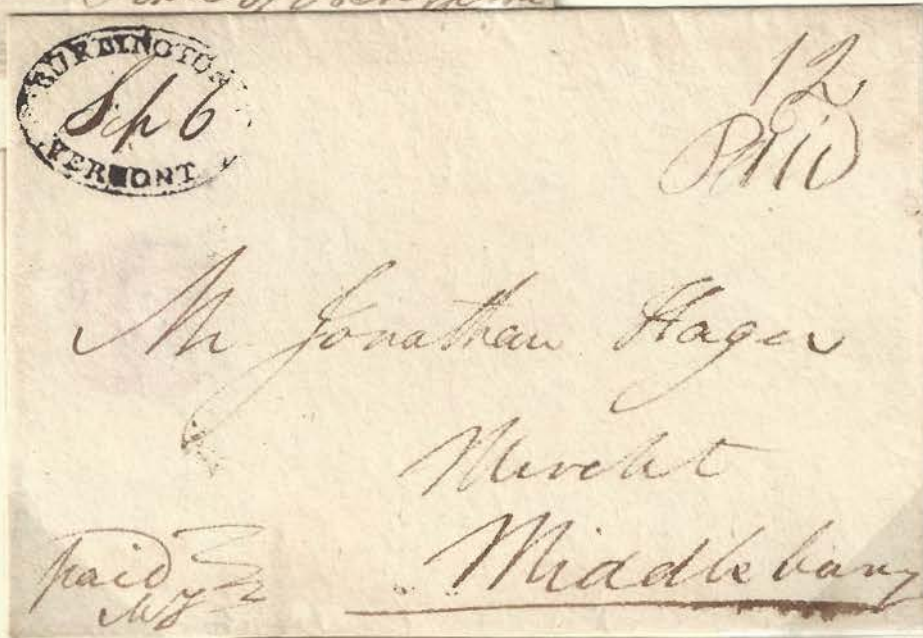 BURLINGTON
Sep 6
VERMONT
12
Paid
Mr Jonathan Hager
Mercht
Middlebury
paid